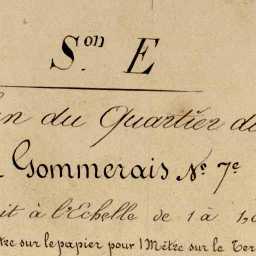 S.on E
du Quartier
Gommerais N.o 7e
à l'Echelle de 1 à
sur le papier pour 1 Mètre sur le